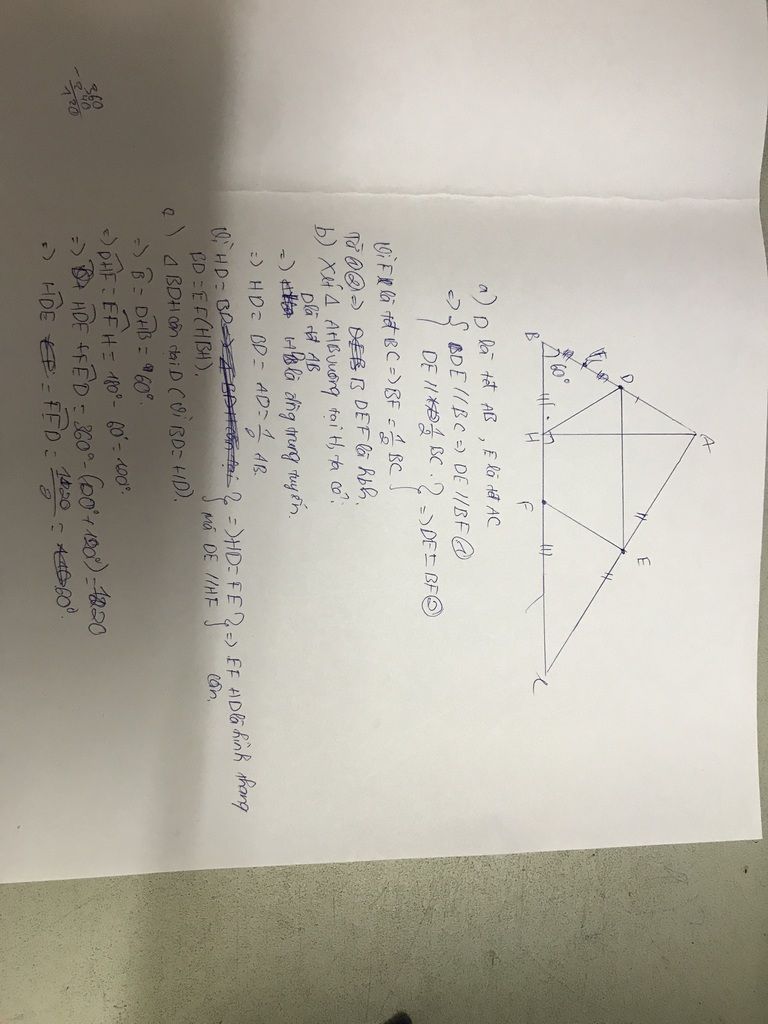 A
D
E
B
60°
H
F
C
a) D là tđ AB, E là tđ AC
=> { DE // BC => DE // BF ①
DE // 1/2 BC. } => DE = BF ②
Vì F là tđ BC => BF = 1/2 BC
Từ ①② => BDEF là hbh.
b) Xét Δ AHB vuông tại H, ta có:
D là tđ AB
=> HD là đường trung tuyến.
=> HD = BD = AD = 1/2 AB.
Vì HD = BD
BD = EF (HBH). } => HD = FE
mà DE // HF } => EFHD là hình thang cân.
c) Δ BDH cân tại D (vì BD = HD).
=> B = DHB = 60°.
=> DHF = EFH = 180° - 60° = 100°.
=> HDE + FED = 360° - (100° + 100°) = 120
=> HDE = FED = 120/2 = 60°.
360
- 240
120